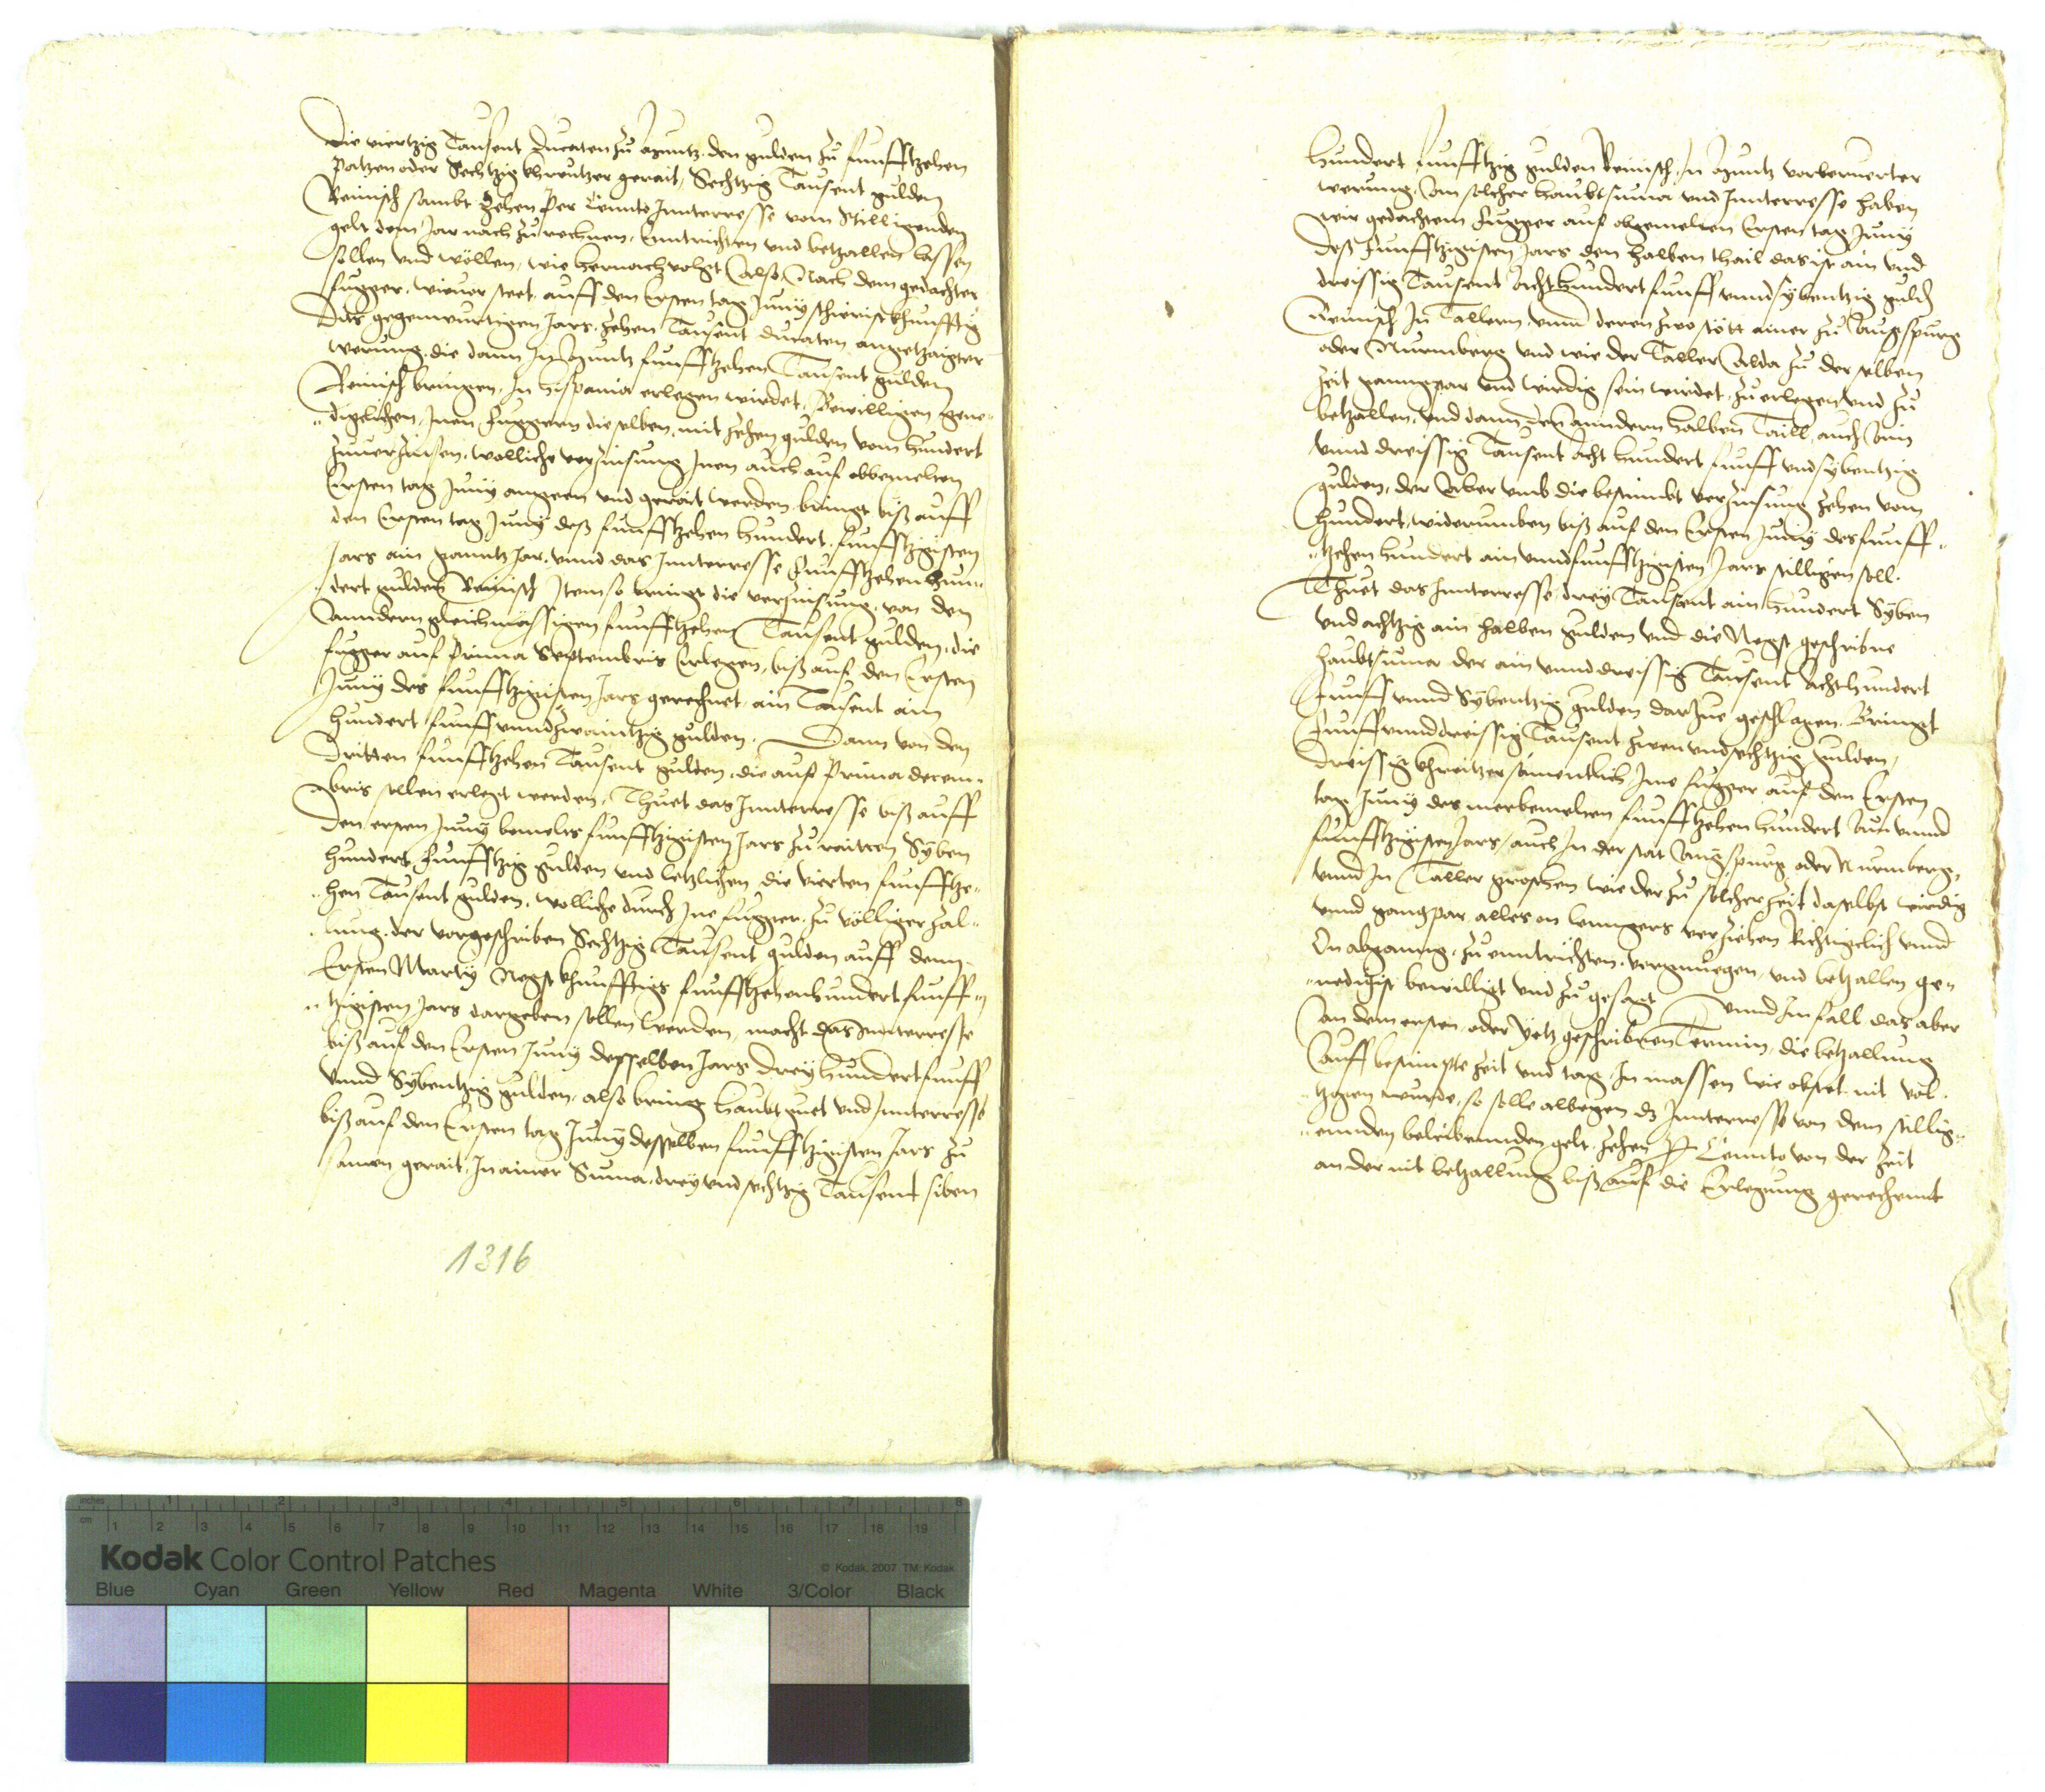 Die viertzig Tausent Ducaten zu Muntz, den gulden zu funfftzehen
patzen oder Sechtzig khreutzer gerait, Sechtzig Tausent gulden
Reinisch sambt Zehen per Cennto Innterresse vom Stilligenden
gelt dem Jar nach zu rechnen, Enntrichten vnd betzallen lassen
sollen vnd wöllen, wie hernach volgt Also, Nach dem gedachter
Fugger, wieuor steet, auff den Ersten tag Junij schierist khunfftig
Ditz gegenwurtigen Jars, Zehen Tausent ducaten angetzaigter
werung, die dann In Muntz funfftzehen Tausent gulden
Reinisch bringen, In Hispania erlegen wirdet, Bewilligen gene-
digclichen, Inen Fuggern dieselben, mit zehen gulden vom hundert
zuuerzinsen, welliche verzinsung Inen auch auf obbemelten
Ersten tag Junij angeen vnd gerait werden, bringt biß auff
den Ersten tag Junij deß funfftzehen hundert funfftzigisten
Jars ain ganntz Jar, vnnd das Innterresse Funfftzehen hun-
dert gulden Reinisch Item so bringt die verzinsung, von den
Anndern gleichmässigen funfftzehen Tausent gulden, die
Fugger auf Prima Septembris Erlegen, biß auf den Ersten
Junij des funfftzigisten Jars gerechnet, ain Tausent ain
hundert funff vnndzwaintzig gulden. Dann von den
dritten funfftzehen Tausent gulden, die auf Prima decem-
bris sollen erlegt werden, Thuet das Innterresse biß auff
den ersten Junij bemelts funfftzigisten Jars zu raitten Syben
hundert, Funfftzig gulden vnd letzlichen die vierten funfftze-
hen Tausent gulden, welliche durch Ine Fugger, zu völliger zal-
lung, der vorgeschriben Sechtzig Tausent gulden auff denn
Ersten Martij Negst khunfftigs funfftzehenhundert funff-
tzigisten Jars dargeben sollen werden, macht das Innterresse
biß auf den Ersten Junij desselben Jars Dreyhundert funff
vnnd Sybentzig gulden, also bring haubtguet vnd Innterresse
biß auf den Ersten tag Junij desselben funfftzigisten Jars zu
samen gerait, In ainer Suma, drey vnd sechtzig Tausent siben
1316
hundert funfftzig gulden Reinisch, In Muntz vorberuerter
werung, An solcher haubtsuma vnd Innterresse haben
wir gedachtem Fugger auf obgemelten Ersten tag Junij
deß Funfftzigisten Jars den halben thail das ist ain vnd
dreissig Tausent Achthundert funff vnnd sybentzig guld
Reinisch In Tallern, vnnd deren zwo stött ainer zu Augspurg
oder Nurmberg vnd wie der Taller Alda zu derselben
zeit ganngpar vnd wirdig sein wirdet, zu erlegen vnd zu
betzallen, vnd dann den anndern halben Taill, auch Ain
vnnd dreissig Tausent Acht hundert funff vnd sybentzig
gulden, der Aber vmb die bestimbt verzinsung zehen vom
Hundert, widerumben biß auf den Ersten Junij des funff-
tzehen hundert ain vnndfunfftzigisten Jars stilligen soll.
Thuet das Innterresse, drey Tausent ain hundert Syben
vnd achtzig ain halben gulden vnd die Negst geschribne
haubtsuma der ain vnnd dreissig Tausent Achthundert
Funff vnnd Sybentzig gulden darzue geschlagen Bringt
Funff vnnd dreissig Tausent zwen vnd sechtzig gulden,
dreissig khreitzer samentlich, Ine Fugger auf den Ersten
tag Junij des merbemelten funfftzehen hundert Ain vnnd
funfftzigisten Jars, auch In der stat Augspurg oder Nurmberg,
vnnd In Taller groschen wie der zu solcher zeit daselbst wirdig
vnnd gangpar alles on lenngers verziehen Richtigclich vnnd
On abganng, zu enntrichten, vernuegen, vnd betzallen ge-
nedigist bewilligt vnd zugesagt vnnd Im fall das aber
An dem ersten, oder Yetz geschribnen Termin, die betzallung
Auff bestimpte Zeit vnd tag, In massen wie obstet nit vol-
tzogen wurde, so solle albegen das Innterresse von dem stillig-
ennden beleibennden gelt, zehen per Cennto von der Zeit
an der nit betzallung biß auf die Erlegung gerechennt
Kodak Color Control Patches
© Kodak, 2007 TM: Kodak
inches 1 2 3 4 5 6 7 8
cm 1 2 3 4 5 6 7 8 9 10 11 12 13 14 15 16 17 18 19
Blue Cyan Green Yellow Red Magenta White 3/Color Black